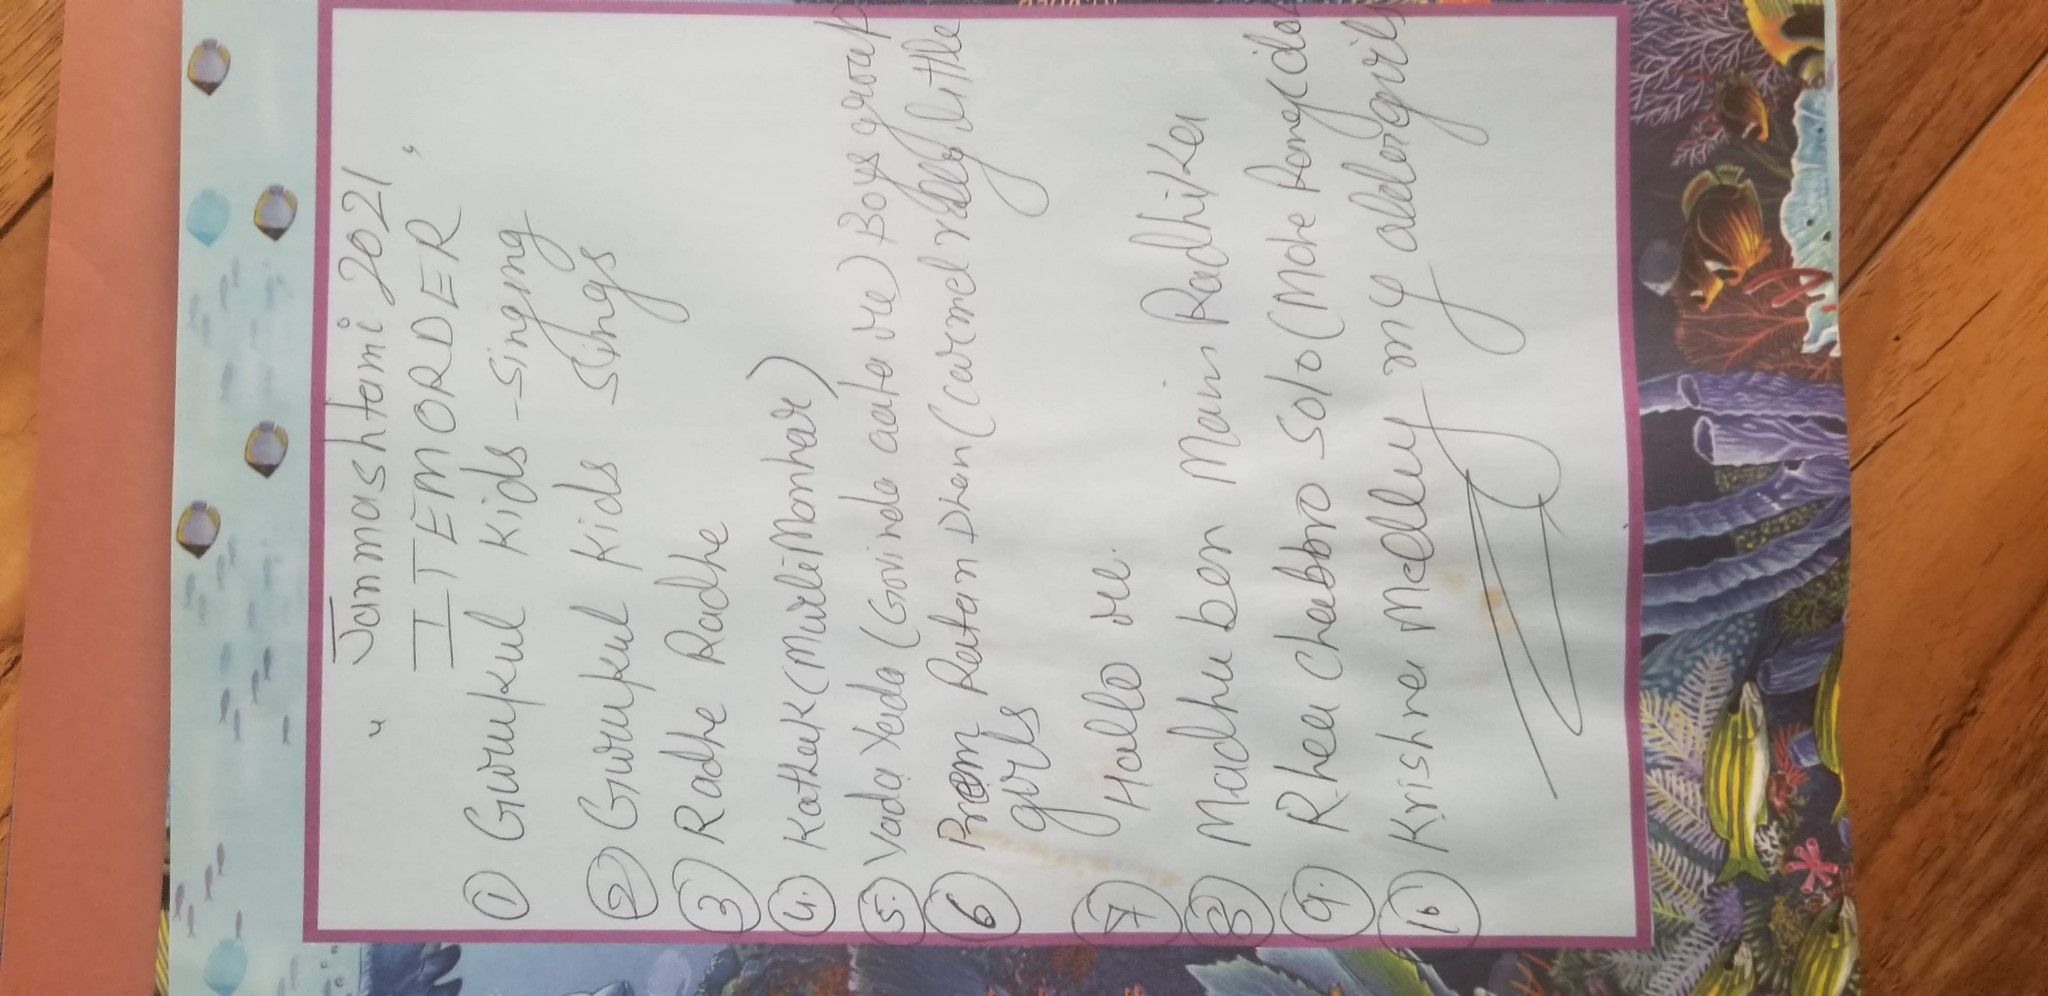 " Janmashtami 2021 "
ITEM ORDER
① Gurukul Kids - Singing
② Gurukul Kids Sings
③ Radhe Radhe
④. Kathak (Murli Manhar)
⑤. Yada Yada (Govinda aala re) Boys group
⑥ Prem Ratan Dhan (Carmel valley little
girls
⑦ Hallo re.
⑧ Madhu ban Main Radhika
⑨. Rhea Chabbra Solo (Mohe Rang do
⑩ Krishna Medley my older girls